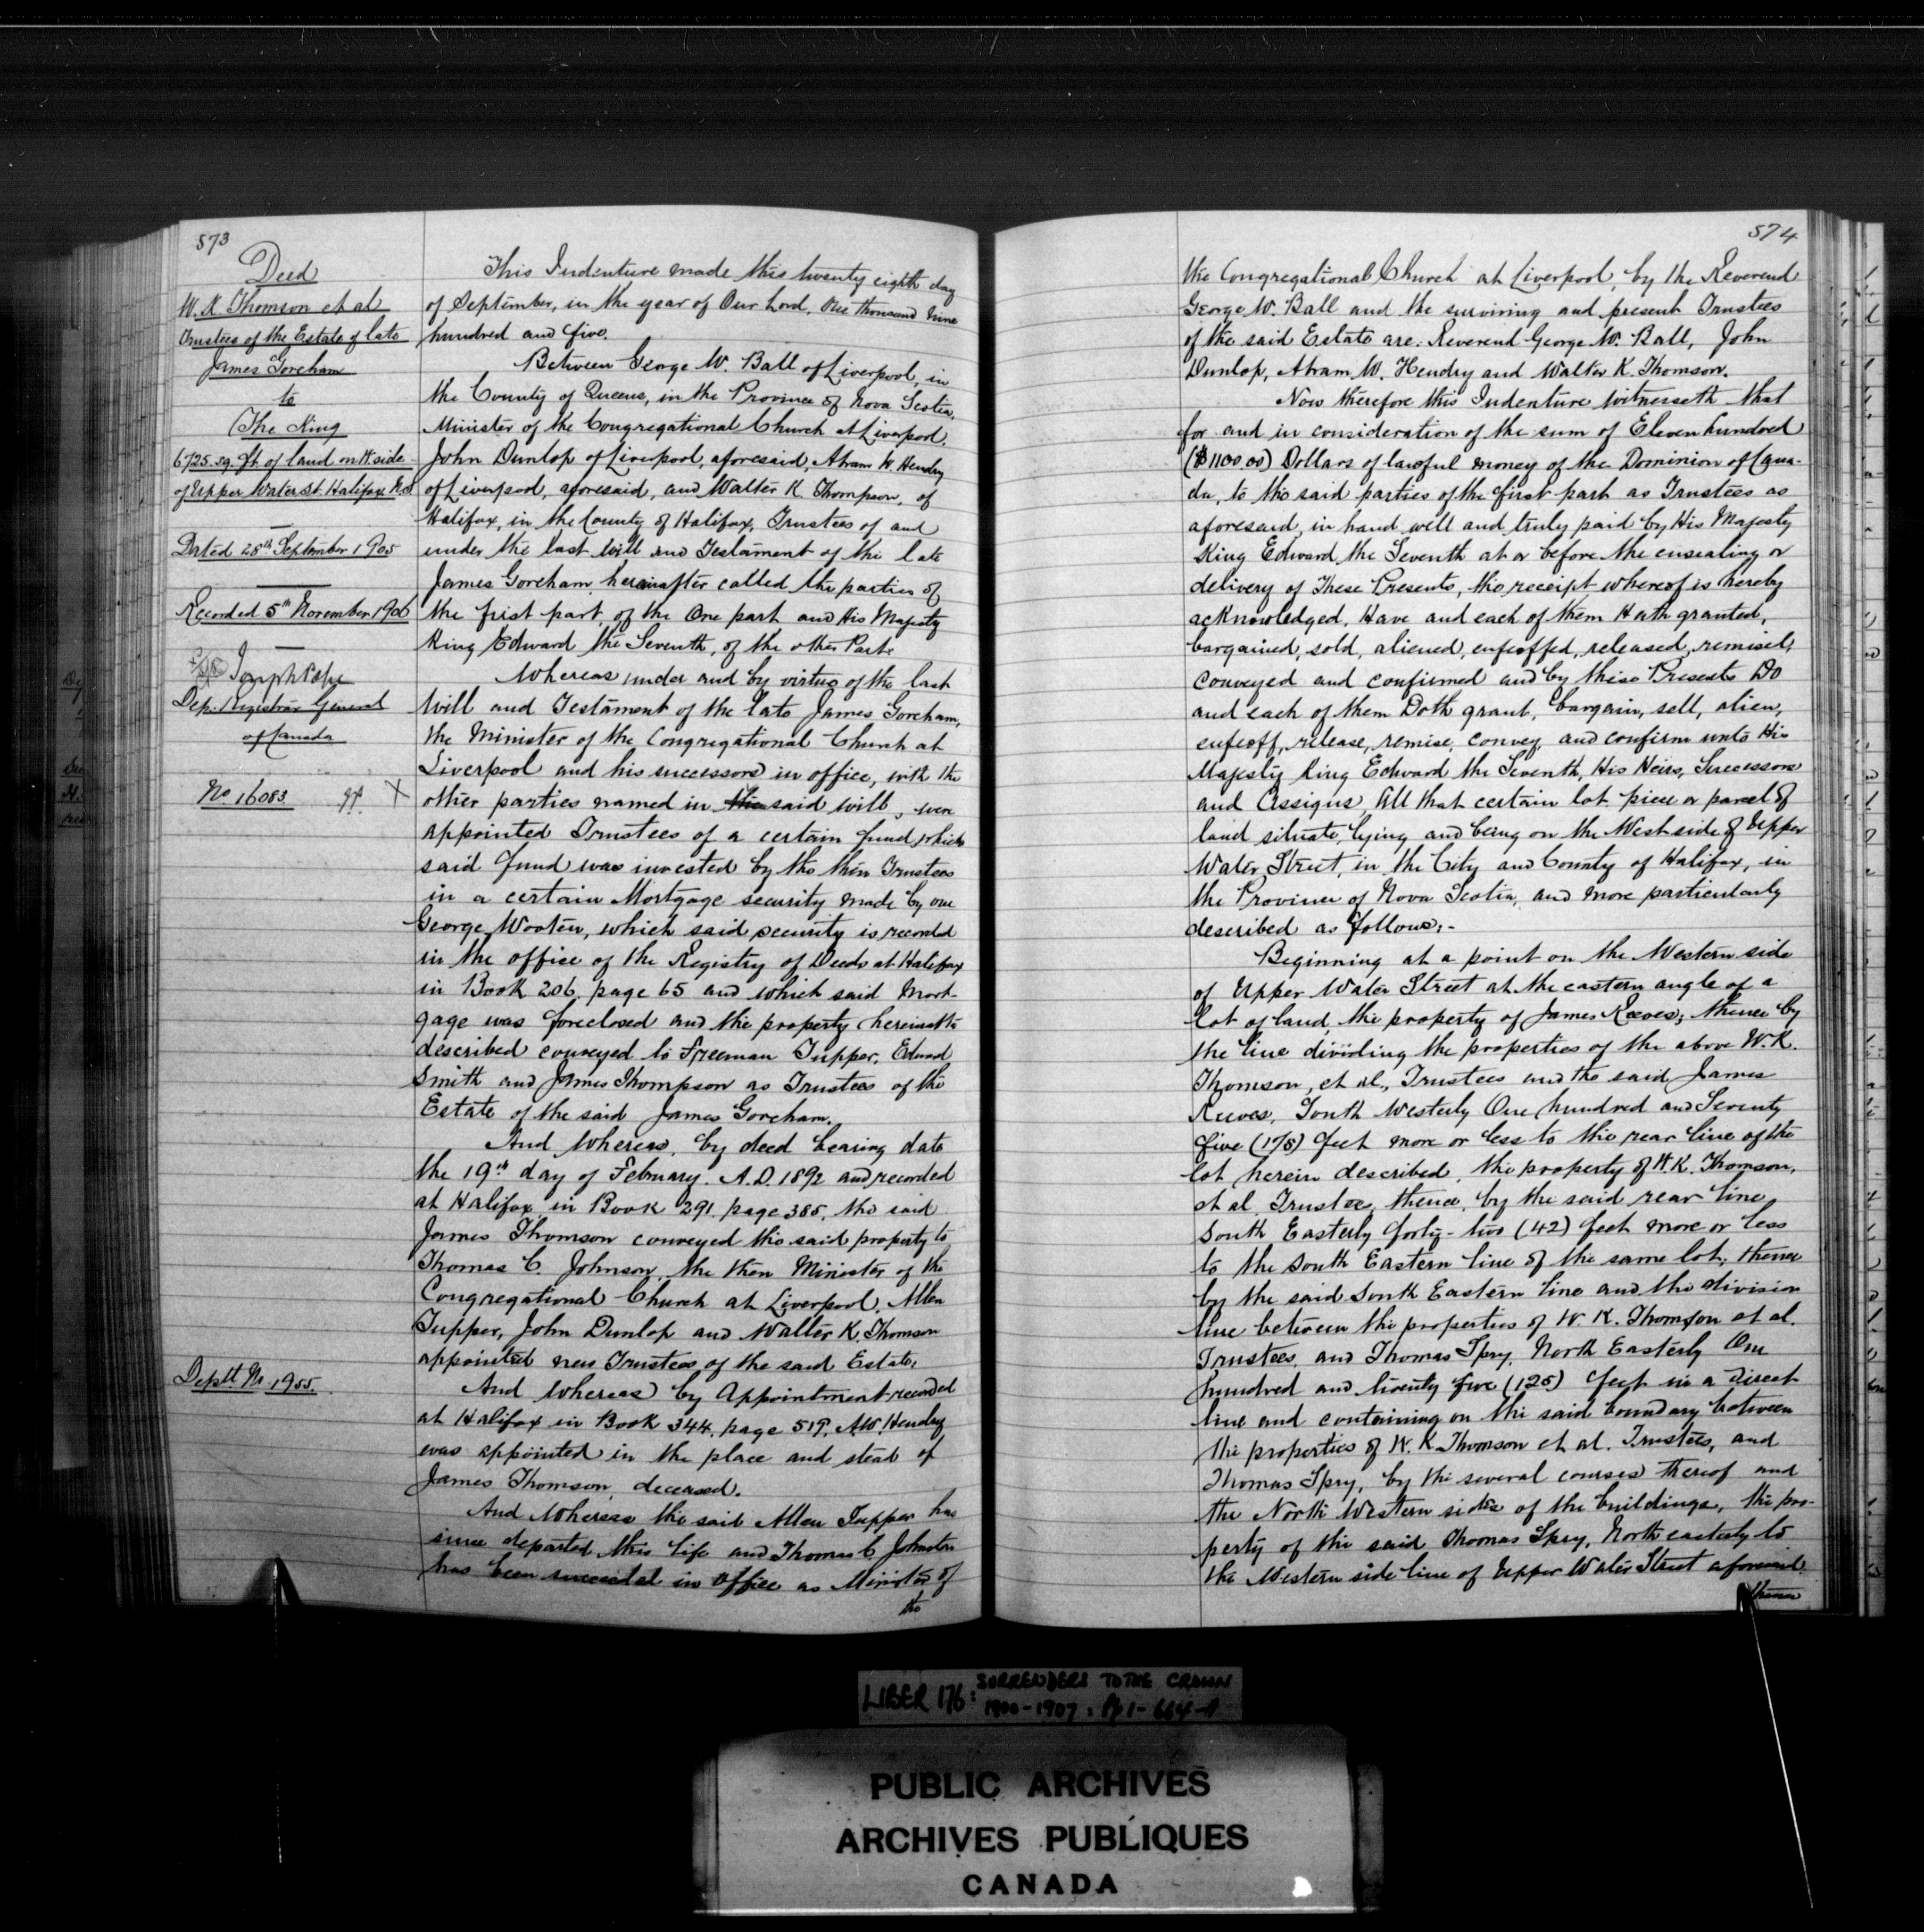 573
Deed
W. K. Thomson et al
Trustees of the Estate of late
James Goreham
to
The King
6725 sq. ft. of land on W. side
of Upper Water St. Halifax N.S
Dated 28th September 1905
Recorded 5th November 1906
Joseph Pope
Dep. Registrar General
of Canada
No 16083
Deptl. No 1955.
This Indenture made this twenty eighth day
of September, in the year of Our Lord, One thousand nine
hundred and five.
Between George W. Ball of Liverpool, in
the County of Queens, in the Province of Nova Scotia,
Minister of the Congregational Church at Liverpool.
John Dunlop of Liverpool, aforesaid, Abram W Hendry
of Liverpool, aforesaid, and Walter K. Thompson, of
Halifax, in the County of Halifax, Trustees of and
under the last will and Testament of the late
James Goreham, hereinafter called the parties of
the first part, of the One part and His Majesty
King Edward the Seventh, of the other Part.
Whereas under and by virtue of the last
Will and Testament of the late James Goreham,
the Minister of the Congregational Church at
Liverpool and his successors in office, with the
other parties named in the said will, were
appointed Trustees of a certain fund, which
said fund was invested by the then Trustees
in a certain Mortgage security made by one
George Wooten, which said security is recorded
in the office of the Registry of Deeds at Halifax
in Book 206, page 65 and which said Mort-
gage was foreclosed and the property hereinafter
described conveyed to Freeman Tupper, Edward
Smith and James Thompson as Trustees of the
Estate of the said James Goreham.
And Whereas, by deed bearing date
the 19th day of February. A.D. 1892 and recorded
at Halifax in Book 291, page 385, the said
James Thomson conveyed the said property to
Thomas C. Johnson, the then Minister of the
Congregational Church at Liverpool, Allen
Tupper, John Dunlop and Walter K. Thomson
appointed new Trustees of the said Estate.
And Whereas by Appointment recorded
at Halifax in Book 344, page 519, A.W. Hendry
was appointed in the place and stead of
James Thomson, deceased.
And Whereas the said Allen Tupper has
since departed this life and Thomas C. Johnston
has been succeeded in office as Minister of
the
574
the Congregational Church at Liverpool, by the Reverend
George W. Ball and the surviving and present Trustees
of the said Estate are: Reverend George W. Ball, John
Dunlop, Abram W. Hendry and Walter K. Thomson.
Now therefore this Indenture witnesseth that
for and in consideration of the sum of Eleven hundred
($1100.00) Dollars of lawful money of the Dominion of Cana-
da, to the said parties of the first part as Trustees as
aforesaid, in hand well and truly paid by His Majesty
King Edward the Seventh at or before the ensealing or
delivery of These Presents, the receipt whereof is hereby
acknowledged, Have and each of them Hath granted,
bargained, sold, aliened, enfeoffed, released, remised,
conveyed and confirmed and by these Presents Do
and each of them Doth grant, bargain, sell, alien,
enfeoff, release, remise, convey, and confirm unto His
Majesty King Edward the Seventh, His Heirs, Successors
and Assigns All that certain lot piece or parcel of
land situate, lying and being on the West side of Upper
Water Street, in the City and County of Halifax, in
the Province of Nova Scotia, and more particularly
described as follows:-
Beginning at a point on the Western side
of Upper Water Street at the eastern angle of a
lot of land, the property of James Reeves; thence by
the line dividing the properties of the above W. K.
Thomson, et al., Trustees and the said James
Reeves, South Westerly One hundred and Seventy
five (175) feet more or less to the rear line of the
lot herein described, the property of W. K. Thomson,
et al. Trustees, thence, by the said rear line
South Easterly forty-two (42) feet more or less
to the South Eastern line of the same lot; thence
by the said South Eastern line and the division
line between the properties of W. K. Thomson et al.
Trustees, and Thomas Spry, North Easterly One
hundred and twenty five (125) feet in a direct
line and containing on the said boundary between
the properties of W. K Thomson et al. Trustees, and
Thomas Spry, by the several courses thereof and
the North Western sides of the buildings, the pro-
perty of the said Thomas Spry, North easterly to
the Western side line of Upper Water Street aforesaid.
thence
LIBER 176: SURRENDERS TO THE CROWN
1900-1907: Pp 1-664-A
PUBLIC ARCHIVES
ARCHIVES PUBLIQUES
CANADA